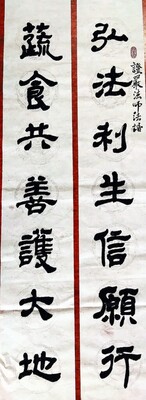 弘法利生信願行
證嚴法師法語
蔬食共善護大地